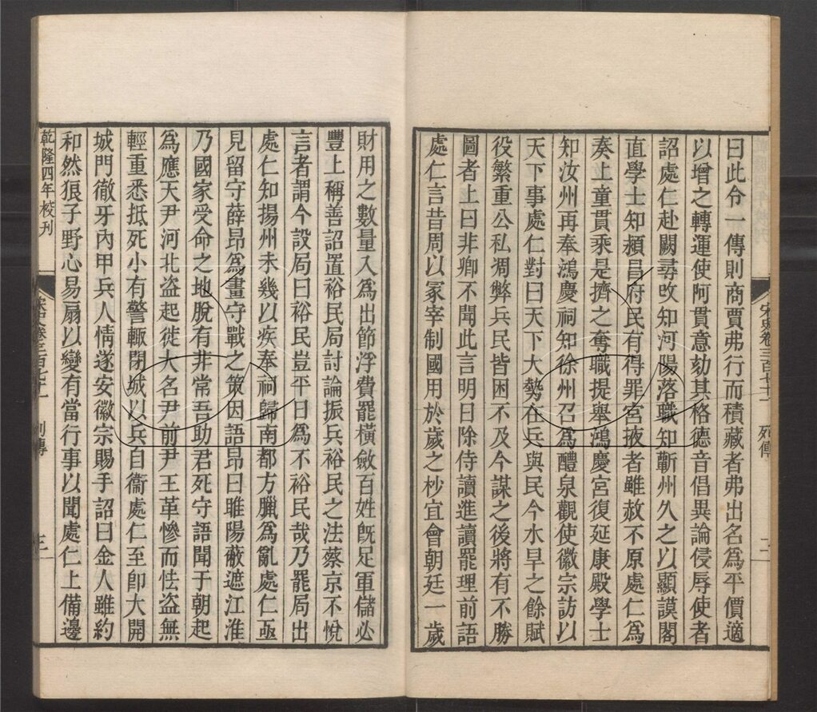 曰此令一傳則商賈弗行而積藏者弗出名爲平價適
以增之轉運使阿貫意劾其格德音倡異論侵辱使者
詔處仁赴闕尋改知河陽落職知蘄州久之以顯謨閣
直學士知潁昌府民有得罪宮掖者雖赦不原處仁爲
奏上童貫乘是擠之奪職提舉鴻慶宮復延康殿學士
知汝州再奉鴻慶祠知徐州召爲醴泉觀使徽宗訪以
天下事處仁對曰天下大勢在兵與民今水旱之餘賦
役繁重公私凋弊兵民皆困不及今謀之後將有不勝
圖者上曰非卿不聞此言明日除侍讀進讀罷理前語
處仁言昔周以冢宰制國用於歲之杪宜會朝廷一歲
宋史卷三百七十一 列傳 二
財用之數量入爲出節浮費罷橫斂百姓旣足軍儲必
豐上稱善詔置裕民局討論振兵裕民之法蔡京不悅
言者謂今設局曰裕民豈平日爲不裕民哉乃罷局出
處仁知揚州未幾以疾奉祠歸南都方臘爲亂處仁亟
見留守薛昂爲畫守戰之策因語昂曰睢陽蔽遮江淮
乃國家受命之地脫有非常吾助君死守語聞于朝起
爲應天尹河北盜起徙大名尹前尹王革慘而怯盜無
輕重悉抵死小有警輒閉城以兵自衞處仁至卽大開
城門徹牙內甲兵人情遂安徽宗賜手詔曰金人雖約
和然狼子野心易扇以變有當行事以聞處仁上備邊
乾隆四年校刊
宋史卷三百七十一 列傳 三